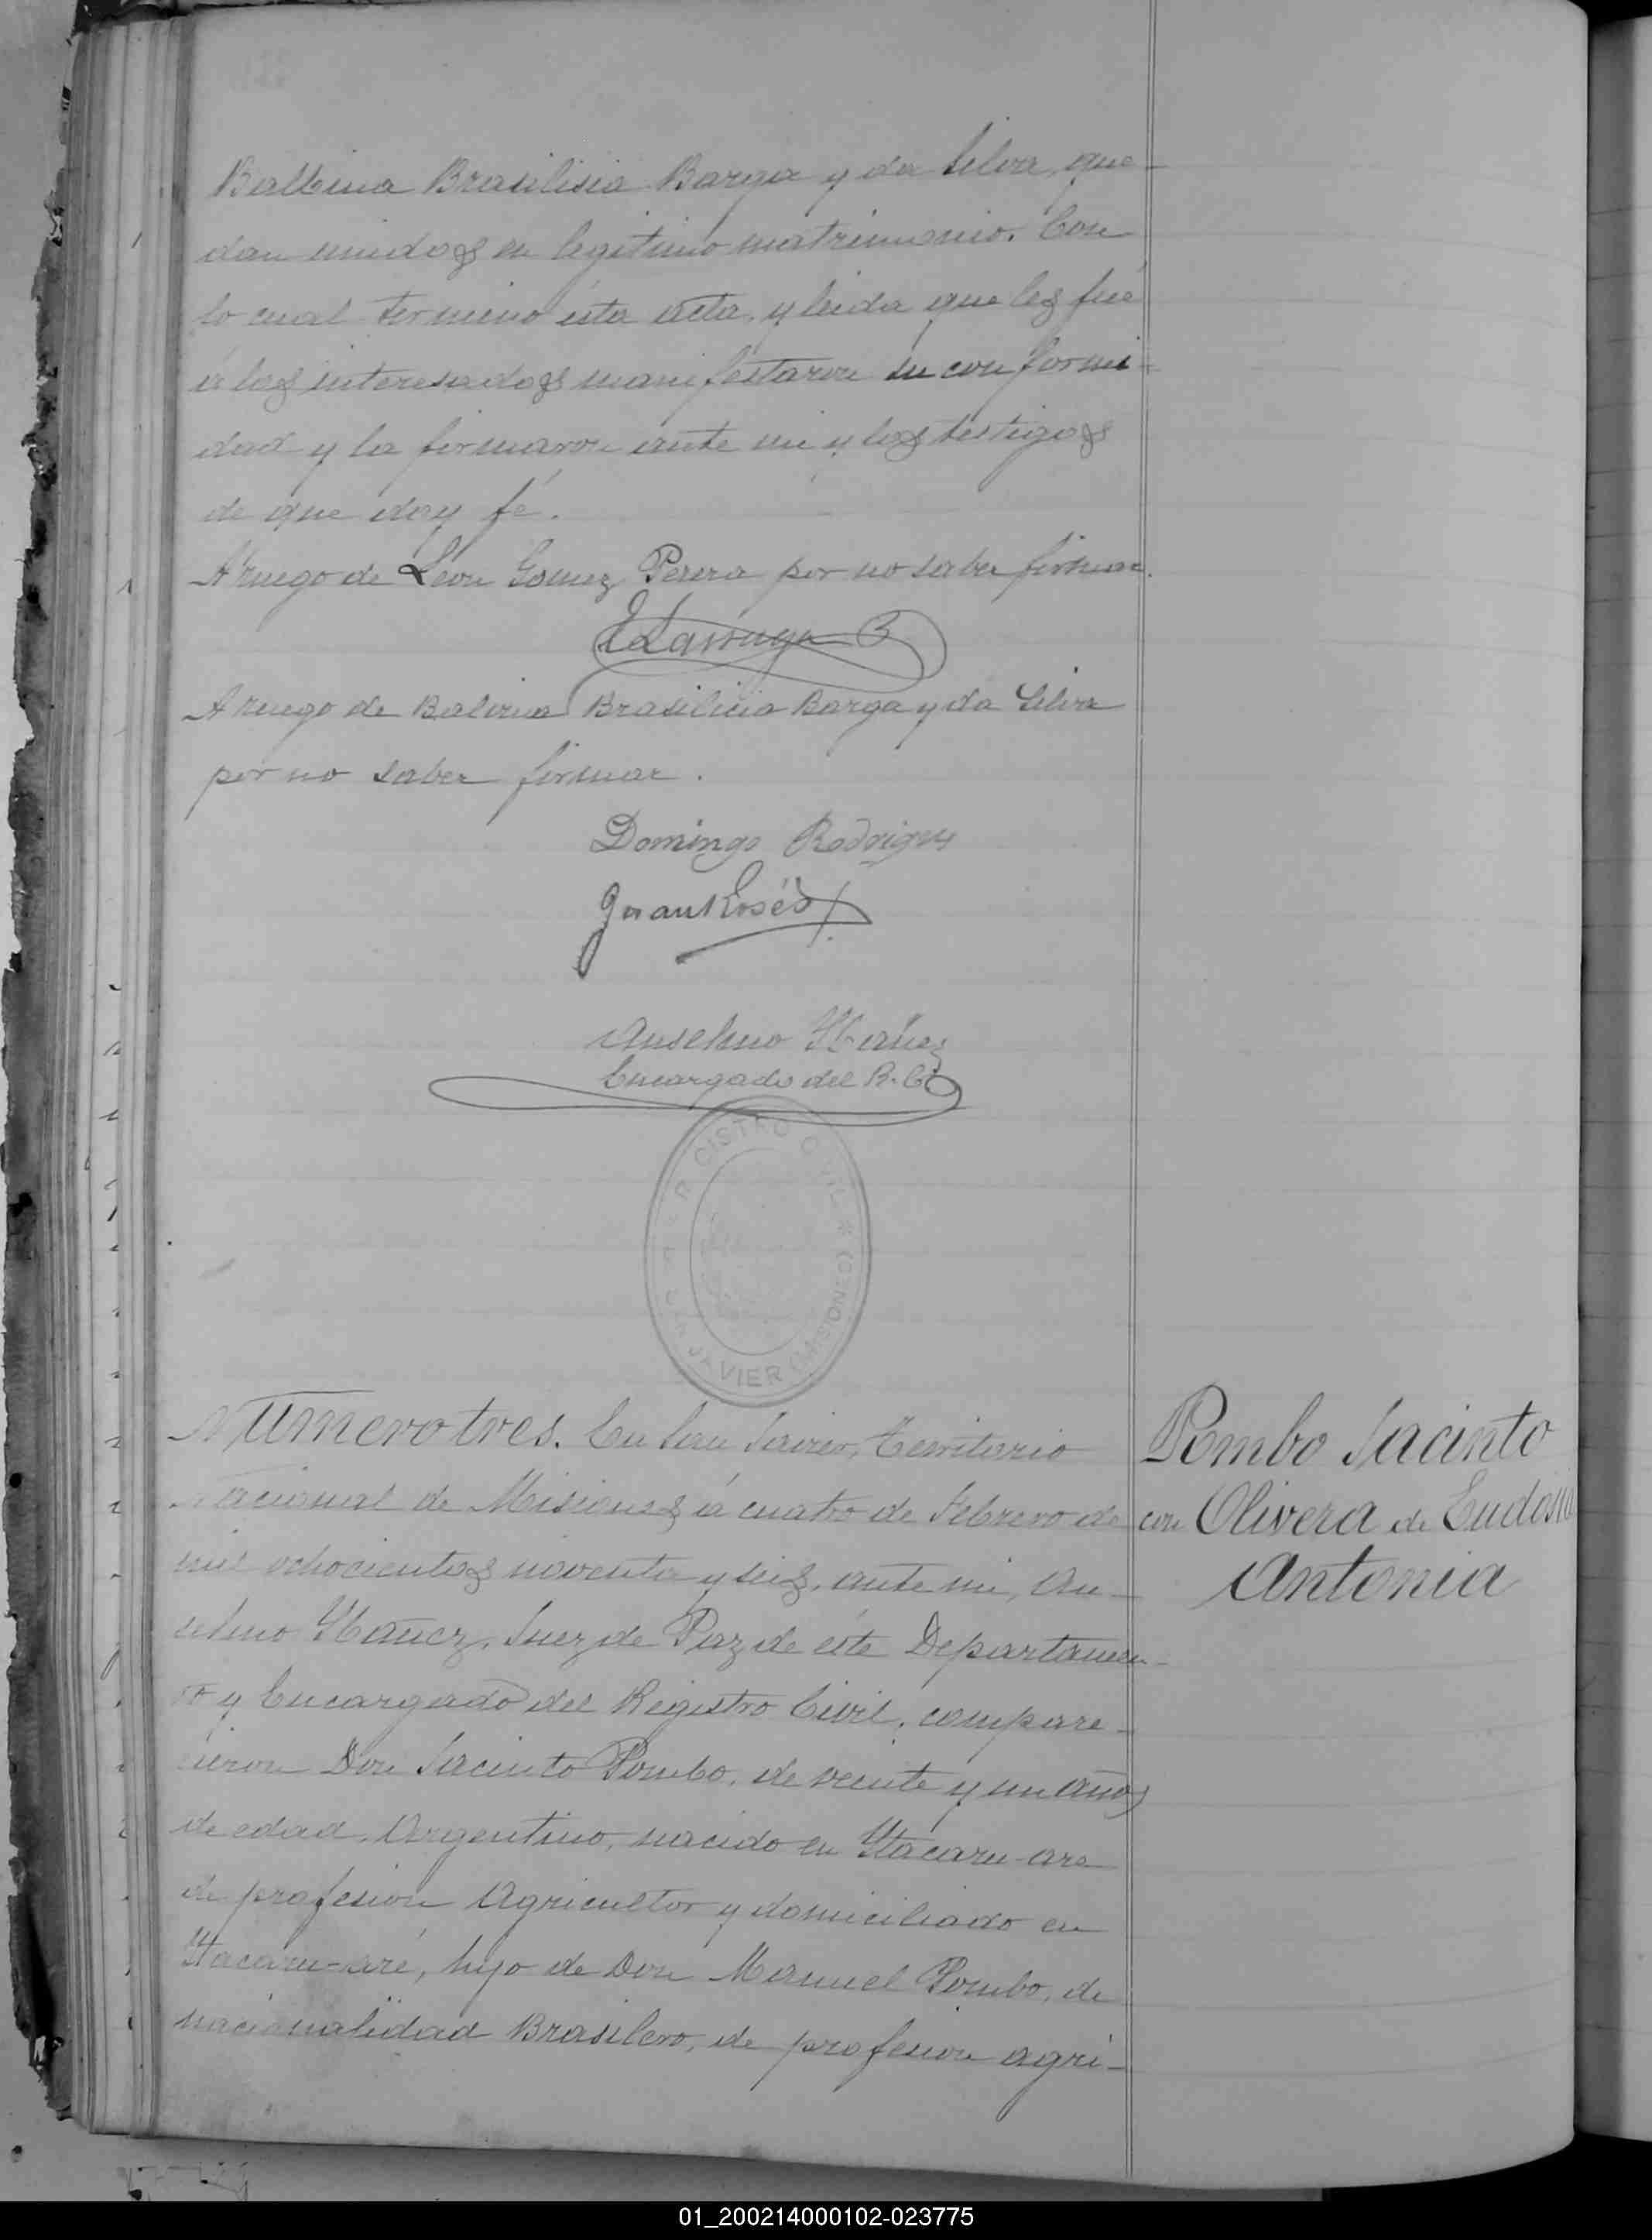 Balbina Brasilisia Barga y da Silva, que-
dan unidos en legitimo matrimonio. Con
lo cual terminó ésta acta, y leida que les fué
á los interesados manifestaron su conformi-
dad y la firmaron ante mi y los testigos
de que doy fé.
A ruego de Léon Gomez Perera por no saber firmar.
E Larruga
A ruego de Balvina Brasilicia Barga y da Silva
por no saber firmar.
Domingo Rodrigues
Juan Rosés
Anselmo Ybañez
Encargado del R. C.
REGISTRO CIVIL * (MISIONES)
JAVIER
Numero tres. En San Javier, Territorio
Nacional de Misiones á cuatro de Febrero de
mil ochocientos noventa y seis, ante mi, An-
selmo Ybañez, Juez de Paz de éste Departamen-
to y Encargado del Registro Civil, compare-
cieron Don Jacinto Pombo, de veinte y un años
de edad, Argentino, nacido en Ytacaru-are
de profesion Agricultor y domiciliado en
Ytacaru-aré, hijo de Don Manuel Pombo, de
nacionalidad Brasilero, de profesion agri-
Pombo Jacinto
con Olivera de Eudosia
Antonia
01_200214000102-023775